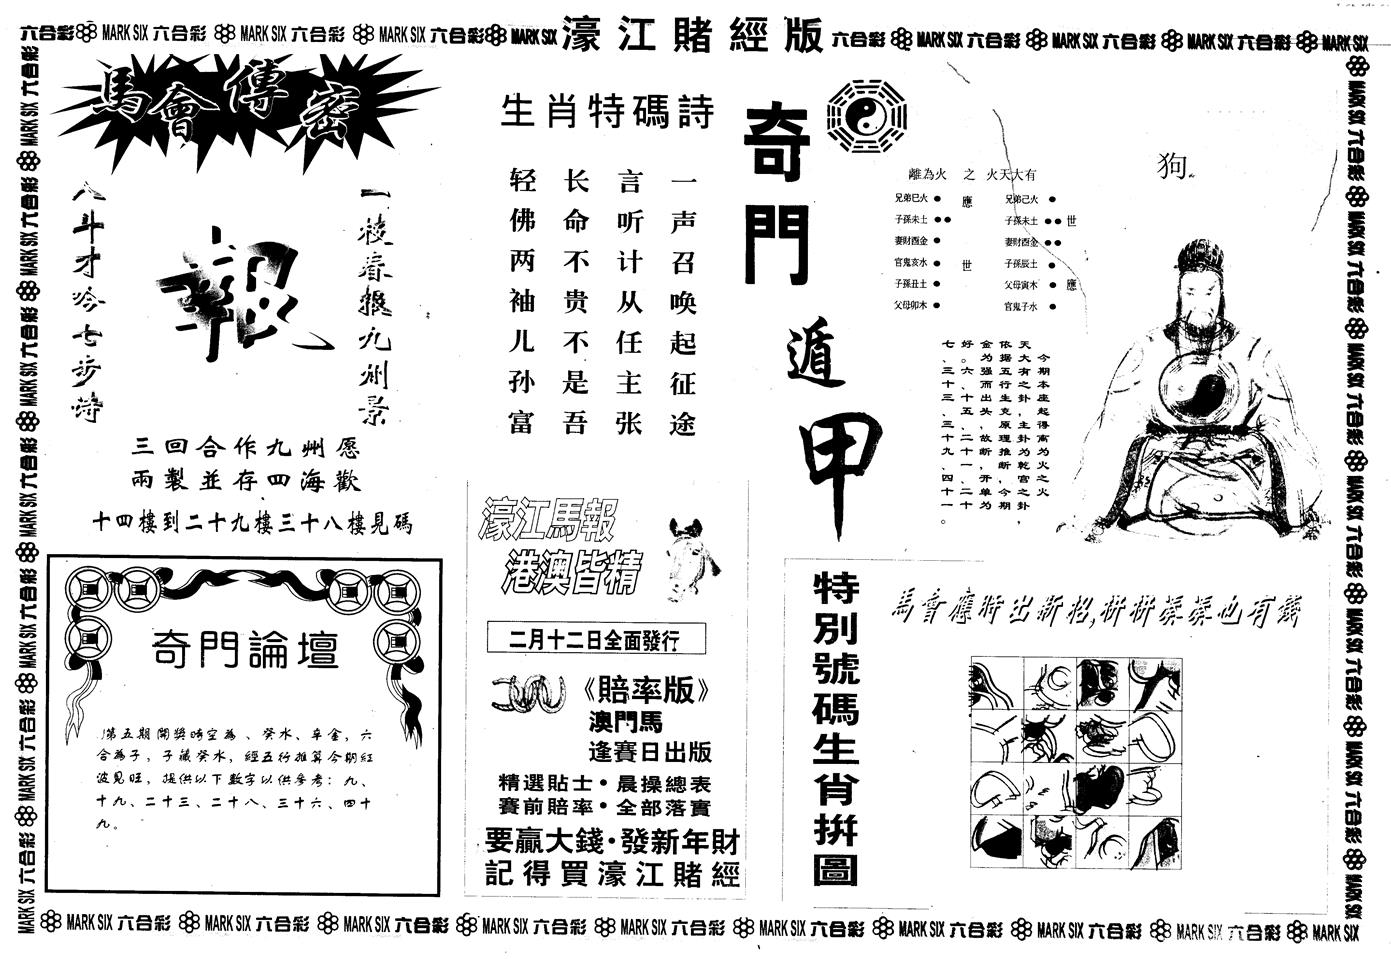 六合彩 MARK SIX 六合彩 MARK SIX 六合彩 MARK SIX 六合彩 MARK SIX
濠江賭經版
六合彩 MARK SIX 六合彩 MARK SIX 六合彩 MARK SIX 六合彩 MARK SIX
馬會傳密
一枝春报九州景
報
八斗才吟七步诗
三回合作九州愿
兩製並存四海歡
十四樓到二十九樓三十八樓見碼
奇門論壇
第五期開獎時空為、癸水、辛金，六
合為子，子藏癸水，經五行推算今期紅
波見旺，提供以下數字以供參考：九、
十九、二十三、二十八、三十六、四十
九。
生肖特碼詩
一声召唤起征途
言听计从任主张
长命不贵不是吾
轻佛两袖儿孙富
濠江馬報
港澳皆精
二月十二日全面發行
《賠率版》
澳門馬
逢賽日出版
精選貼士•晨操總表
賽前賠率•全部落實
要贏大錢·發新年財
記得買濠江賭經
奇門遁甲
狗
離為火 之 火天大有
兄弟巳火 ● 應 兄弟己火 ●
子孫未土 ●● 子孫未土 ●● 世
妻財酉金 ● 妻財酉金 ●●
官鬼亥水 ● 世 子孫辰土 ●
子孫丑土 ● 父母寅木 ● 應
父母卯木 ● 官鬼子水 ●
今期本座起得离为火之火
天大有之卦，主卦为乾宫之卦，
依据五行生克，原理推断，今期
金为强而出头，故断，开单为
好。六、十五、二十一、二十
七、三十三、三十九、四十一。
特別號碼生肖拼圖
馬會應時出新招，拼拼湊湊也有錢
MARK SIX 六合彩 MARK SIX 六合彩 MARK SIX 六合彩 MARK SIX 六合彩 MARK SIX 六合彩 MARK SIX 六合彩 MARK SIX 六合彩 MARK SIX 六合彩 MARK SIX 六合彩 MARK SIX